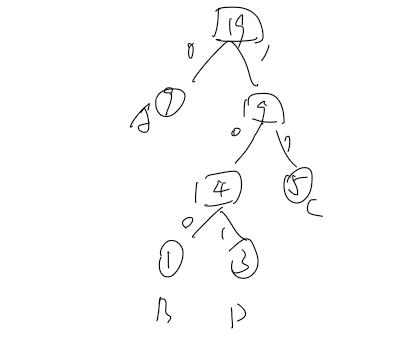 19
0 1
A 9 9
0 1
4 5
C
0 1
1 3
B D